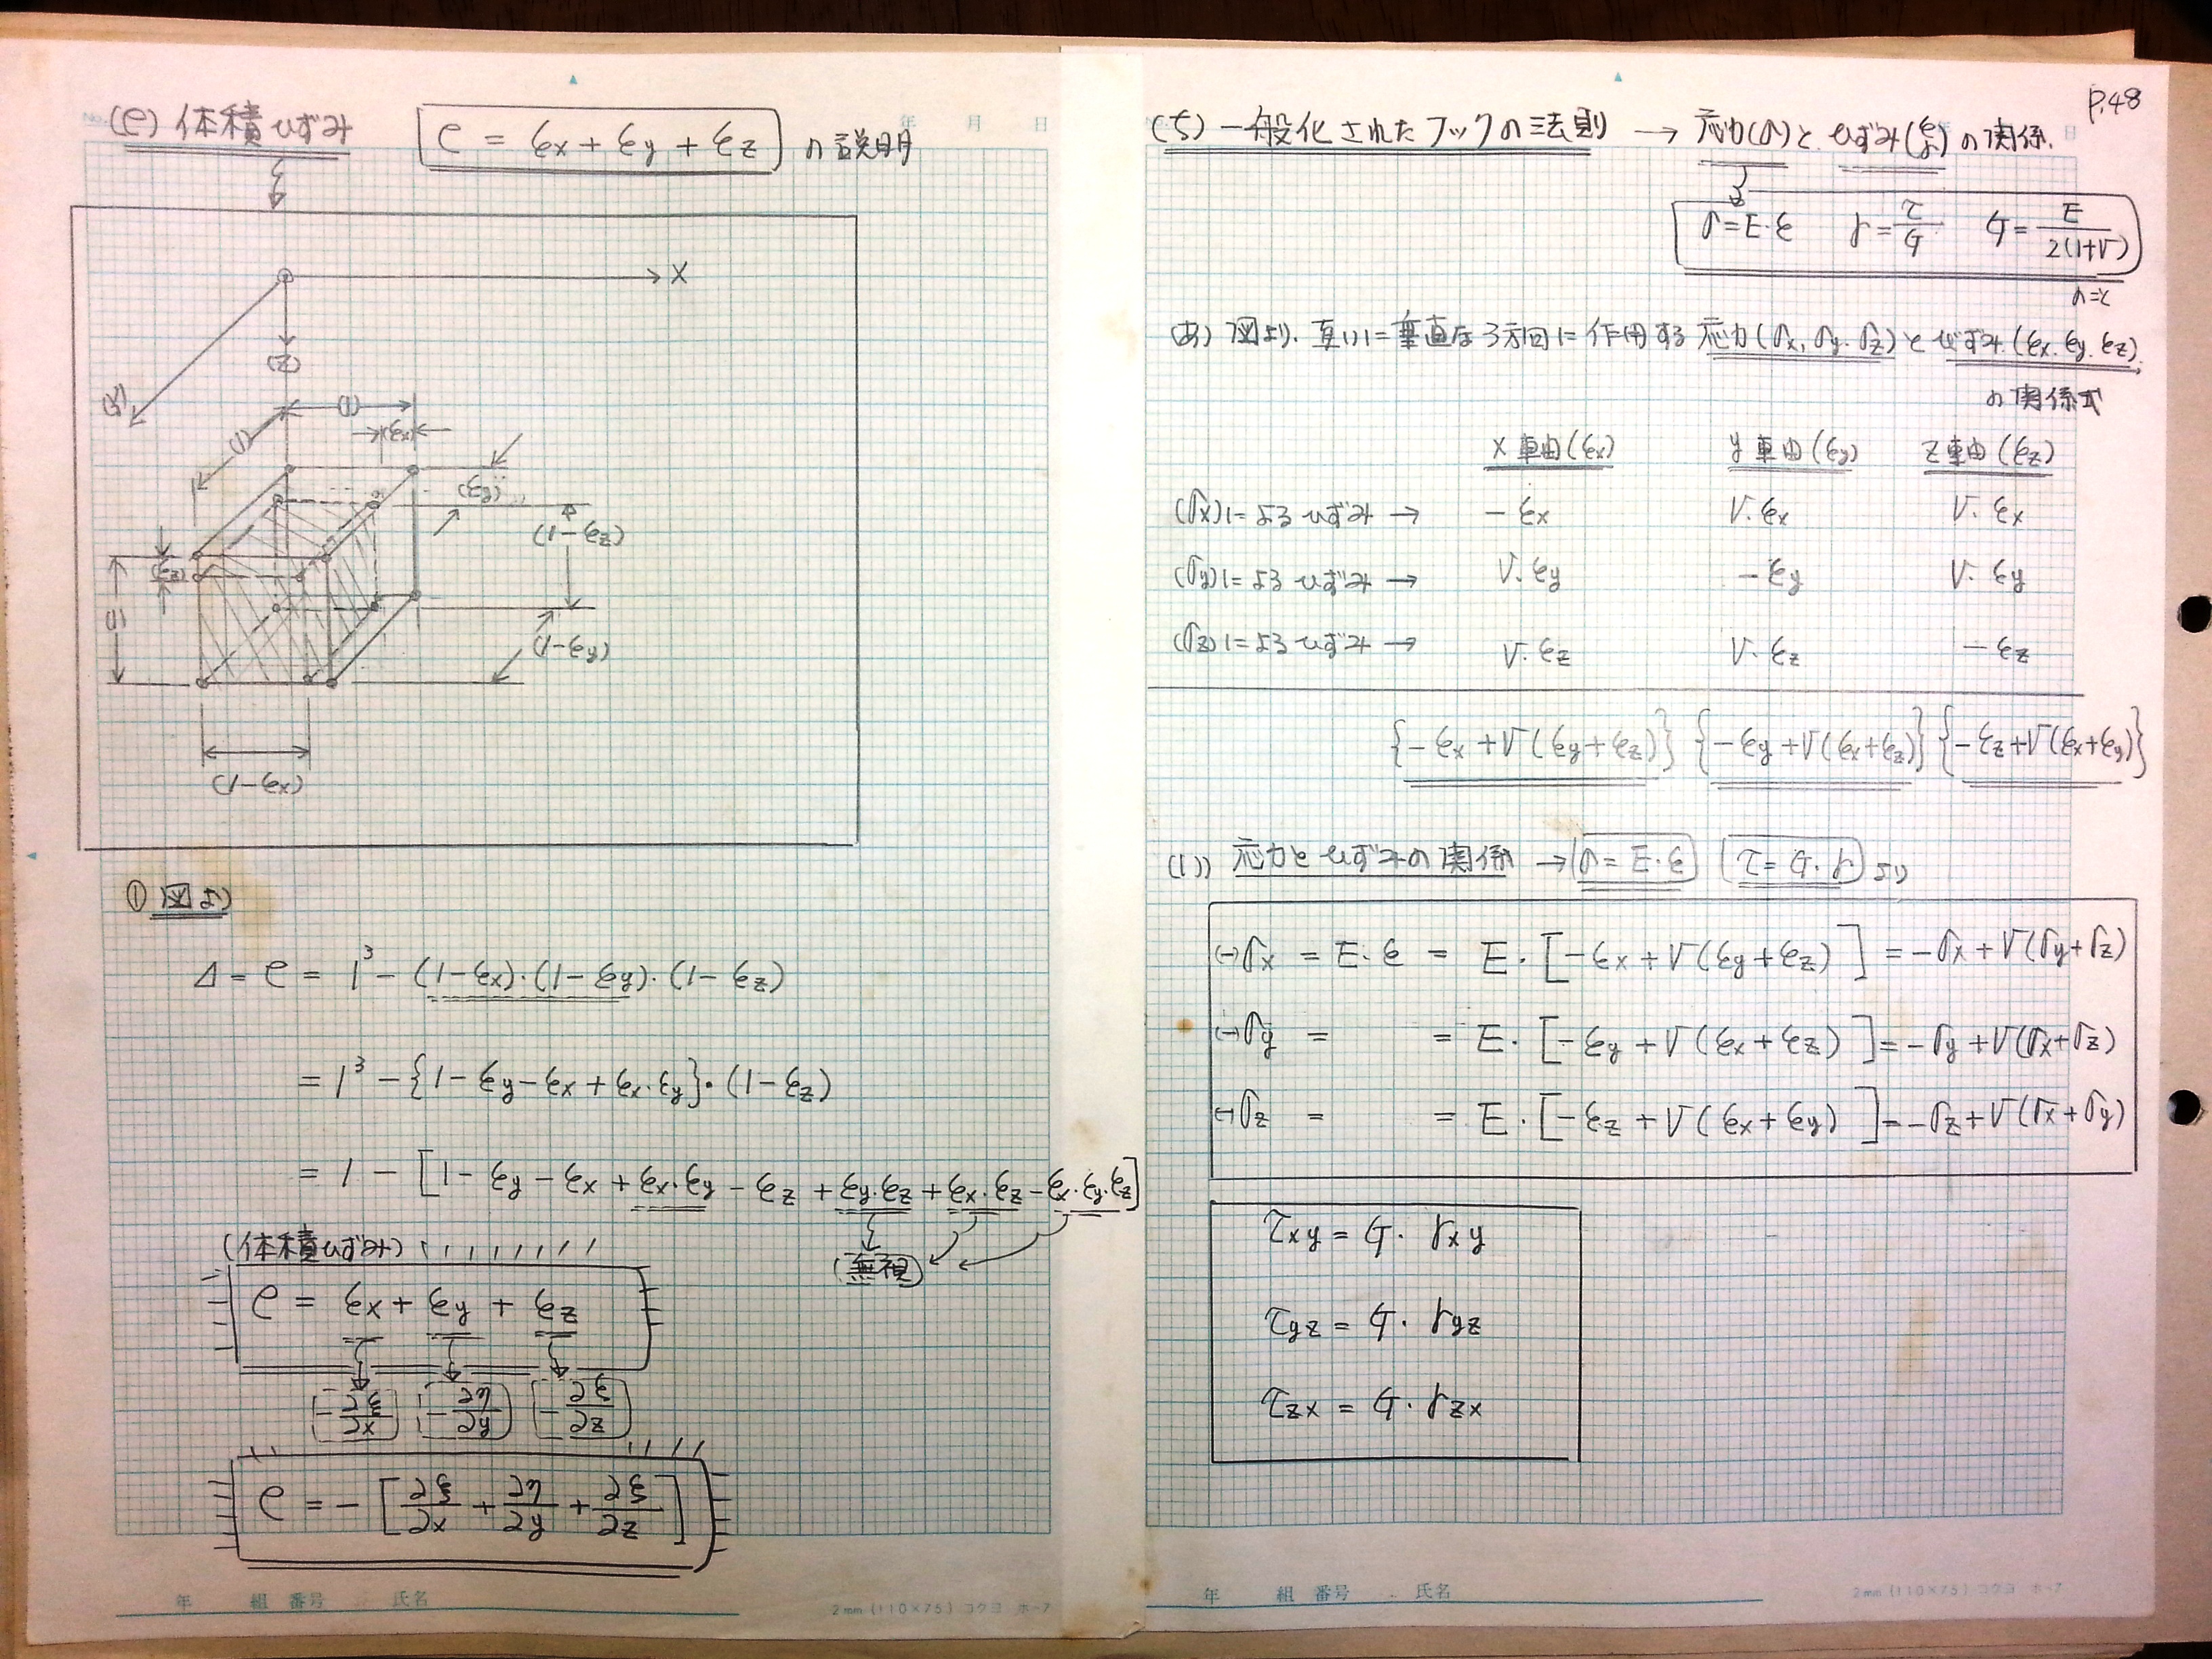 (e) 体積ひずみ e = εx + εy + εz の説明
X
(Z)
(y)
(1)
(1)
(εx)
(εy)
(1-εz)
(εz)
(1)
(1-εy)
(1-εx)
① 図より
Δ = e = 1³ - (1-εx)・(1-εy)・(1-εz)
= 1³ - {1 - εy - εx + εx・εy}・(1-εz)
= 1 - [1 - εy - εx + εx・εy - εz + εy・εz + εx・εz - εx・εy・εz]
(無視)
(体積ひずみ)
e = εx + εy + εz
-∂ξ/∂x -∂η/∂y -∂ξ/∂z
e = -[∂ξ/∂x + ∂η/∂y + ∂ξ/∂z]
年 組 番号 氏名
2mm (110×75) コクヨ ホ-7
P.48
年 月 日
(ち) 一般化されたフックの法則 → 応力(σ)と ひずみ(ε γ)の関係.
σ=E・ε γ=τ/G G=E/2(1+ν)
(あ) 図より. 互いに垂直な3方向に作用する応力(σx, σy. σz)とひずみ(εx. εy. εz)
の関係式
X軸(εx) y軸(εy) Z軸(εz)
(σx)によるひずみ → -εx ν・εx ν・εx
(σy)によるひずみ → ν・εy -εy ν・εy
(σz)によるひずみ → ν・εz ν・εz -εz
{-εx+ν(εy+εz)} {-εy+ν(εx+εz)} {-εz+ν(εx+εy)}
(い) 応力とひずみの関係 → σ=E・ε τ=G・γ より
(-)σx = E・ε = E・[-εx+ν(εy+εz)] = -σx+ν(σy+σz)
(-)σy = = E・[-εy+ν(εx+εz)] = -σy+ν(σx+σz)
(-)σz = = E・[-εz+ν(εx+εy)] = -σz+ν(σx+σy)
τxy = G・γxy
τyz = G・γyz
τzx = G・γzx
年 組 番号 氏名
2mm (110×75) コクヨ ホ-7